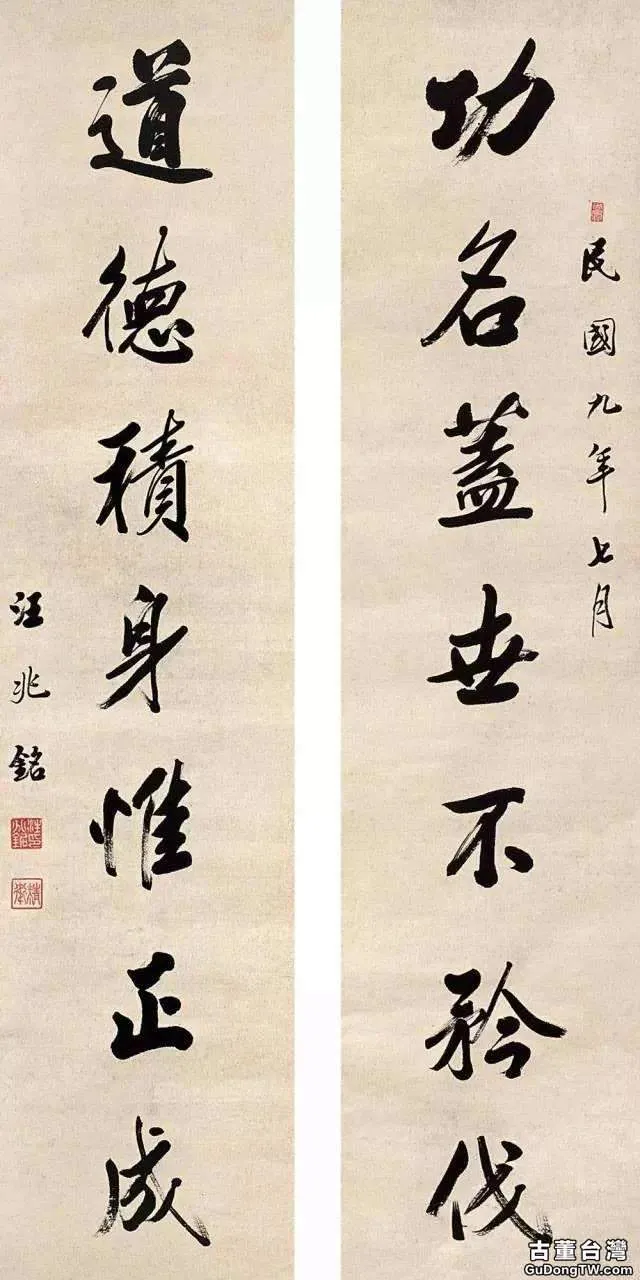 民國九年七月
功名蓋世不矜伐
道德積身惟正成
汪兆銘
古董台灣
GuDongTW.com